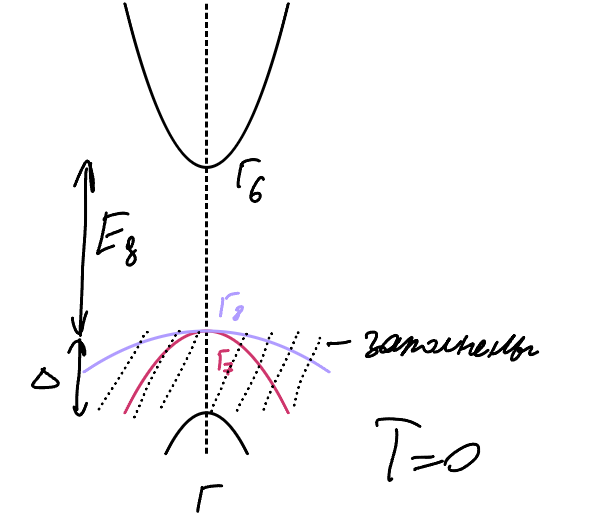 Γ₆
E₉
Γ₈
Γ₇
- заполнены
Δ
T=0
Γ